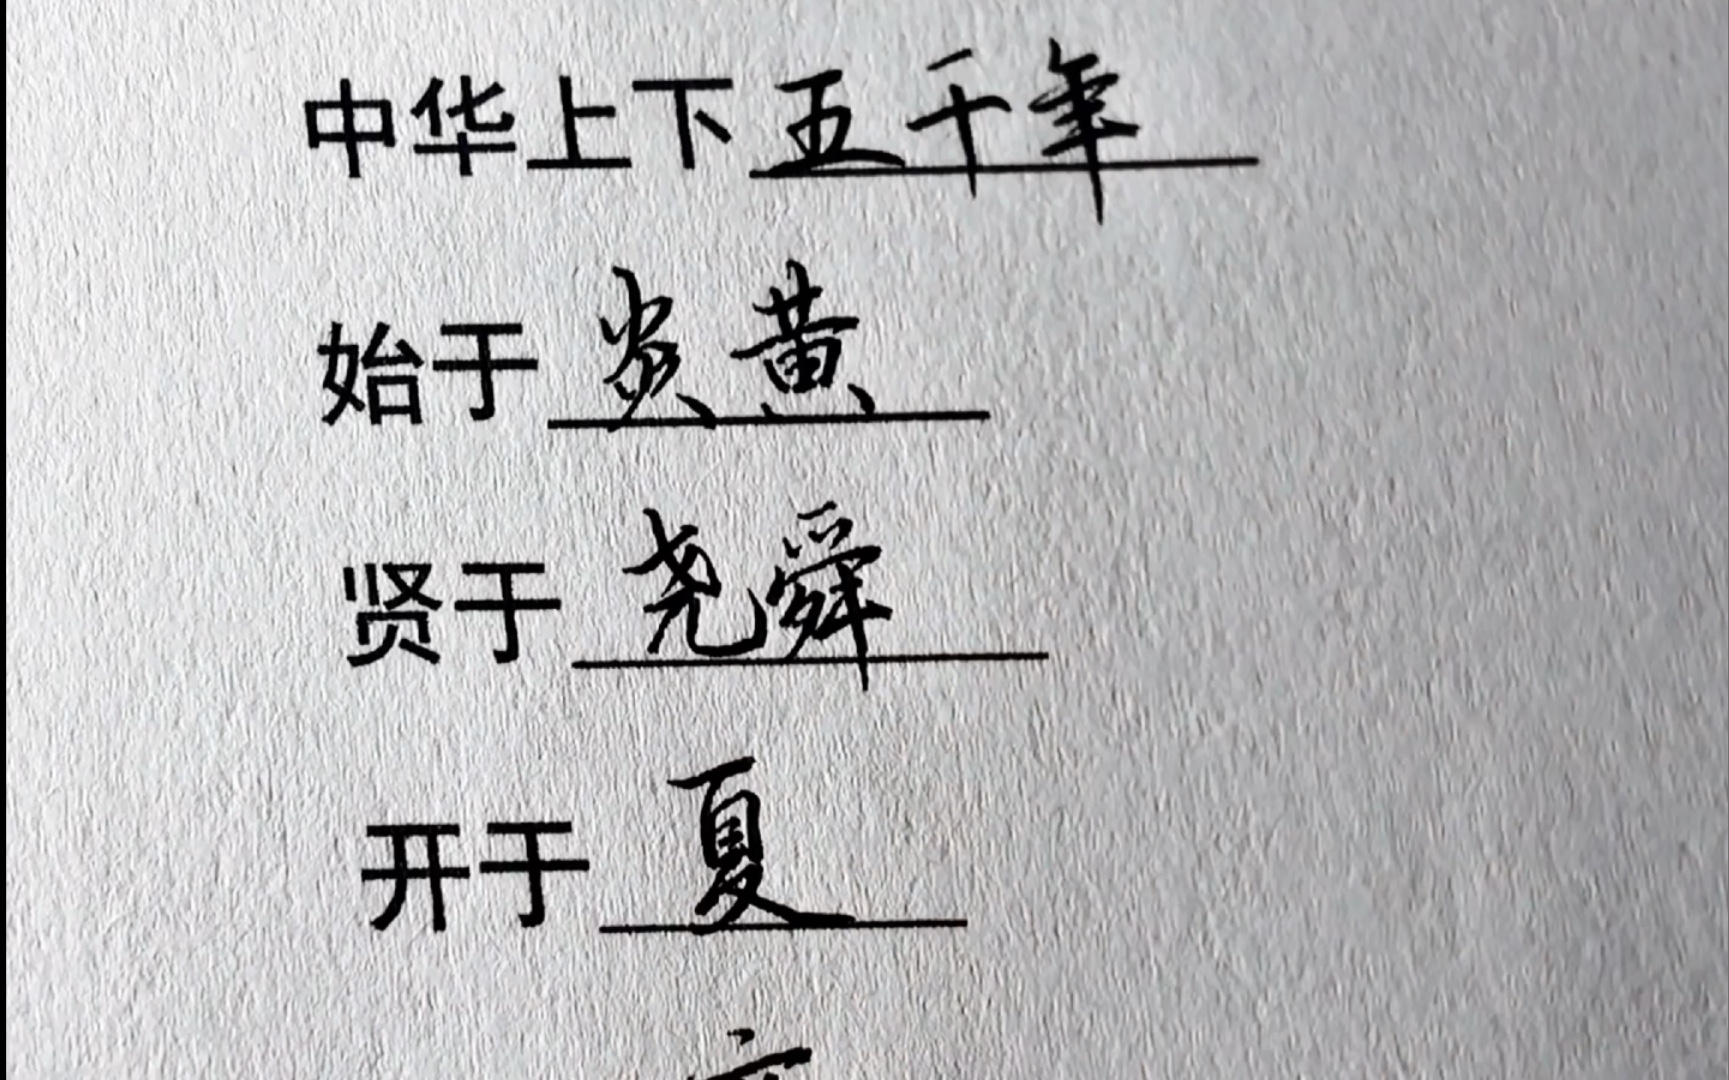 中华上下五千年
始于炎黄
贤于尧舜
开于夏